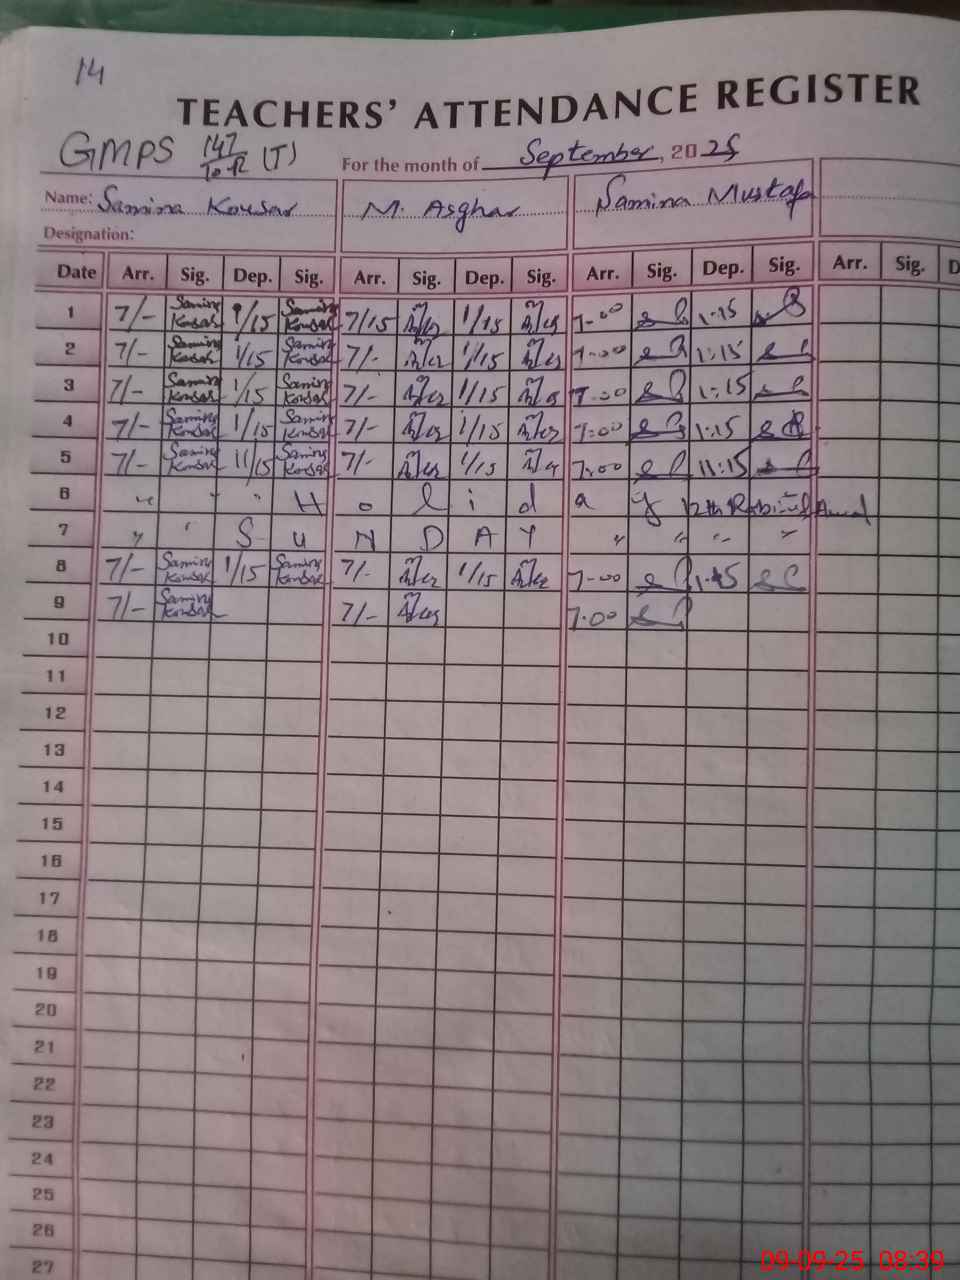 14
TEACHERS' ATTENDANCE REGISTER
GMPS 147/10-R (T) For the month of September, 2025
Name: Samina Kousar M. Asghar Samina Mustafa
Designation:
Date Arr. Sig. Dep. Sig. Arr. Sig. Dep. Sig. Arr. Sig. Dep. Sig. Arr. Sig. D
1 7/- Samina Kousar 1/15 Samina Kousar 7/15 1/15 7-00 1-15
2 7/- Samina Kousar 1/15 Samina Kousar 7/- 1/15 7-00 1:15
3 7/- Samina Kousar 1/15 Samina Kousar 7/- 1/15 7-00 1:15
4 7/- Samina Kousar 1/15 Samina Kousar 7/- 1/15 7:00 1:15
5 7/- Samina Kousar 11/15 Samina Kousar 7/- 1/15 7:00 11:15
6 " " " H o l i d a y 12th Rabi-ul-Awal
7 " " S u N D A Y " " " "
8 7/- Samina Kousar 1/15 Samina Kousar 7/- 1/15 7-00 1-15
9 7/- Samina Kousar 7/- 7.00
10
11
12
13
14
15
16
17
18
19
20
21
22
23
24
25
26
27
09-09-25 08:39